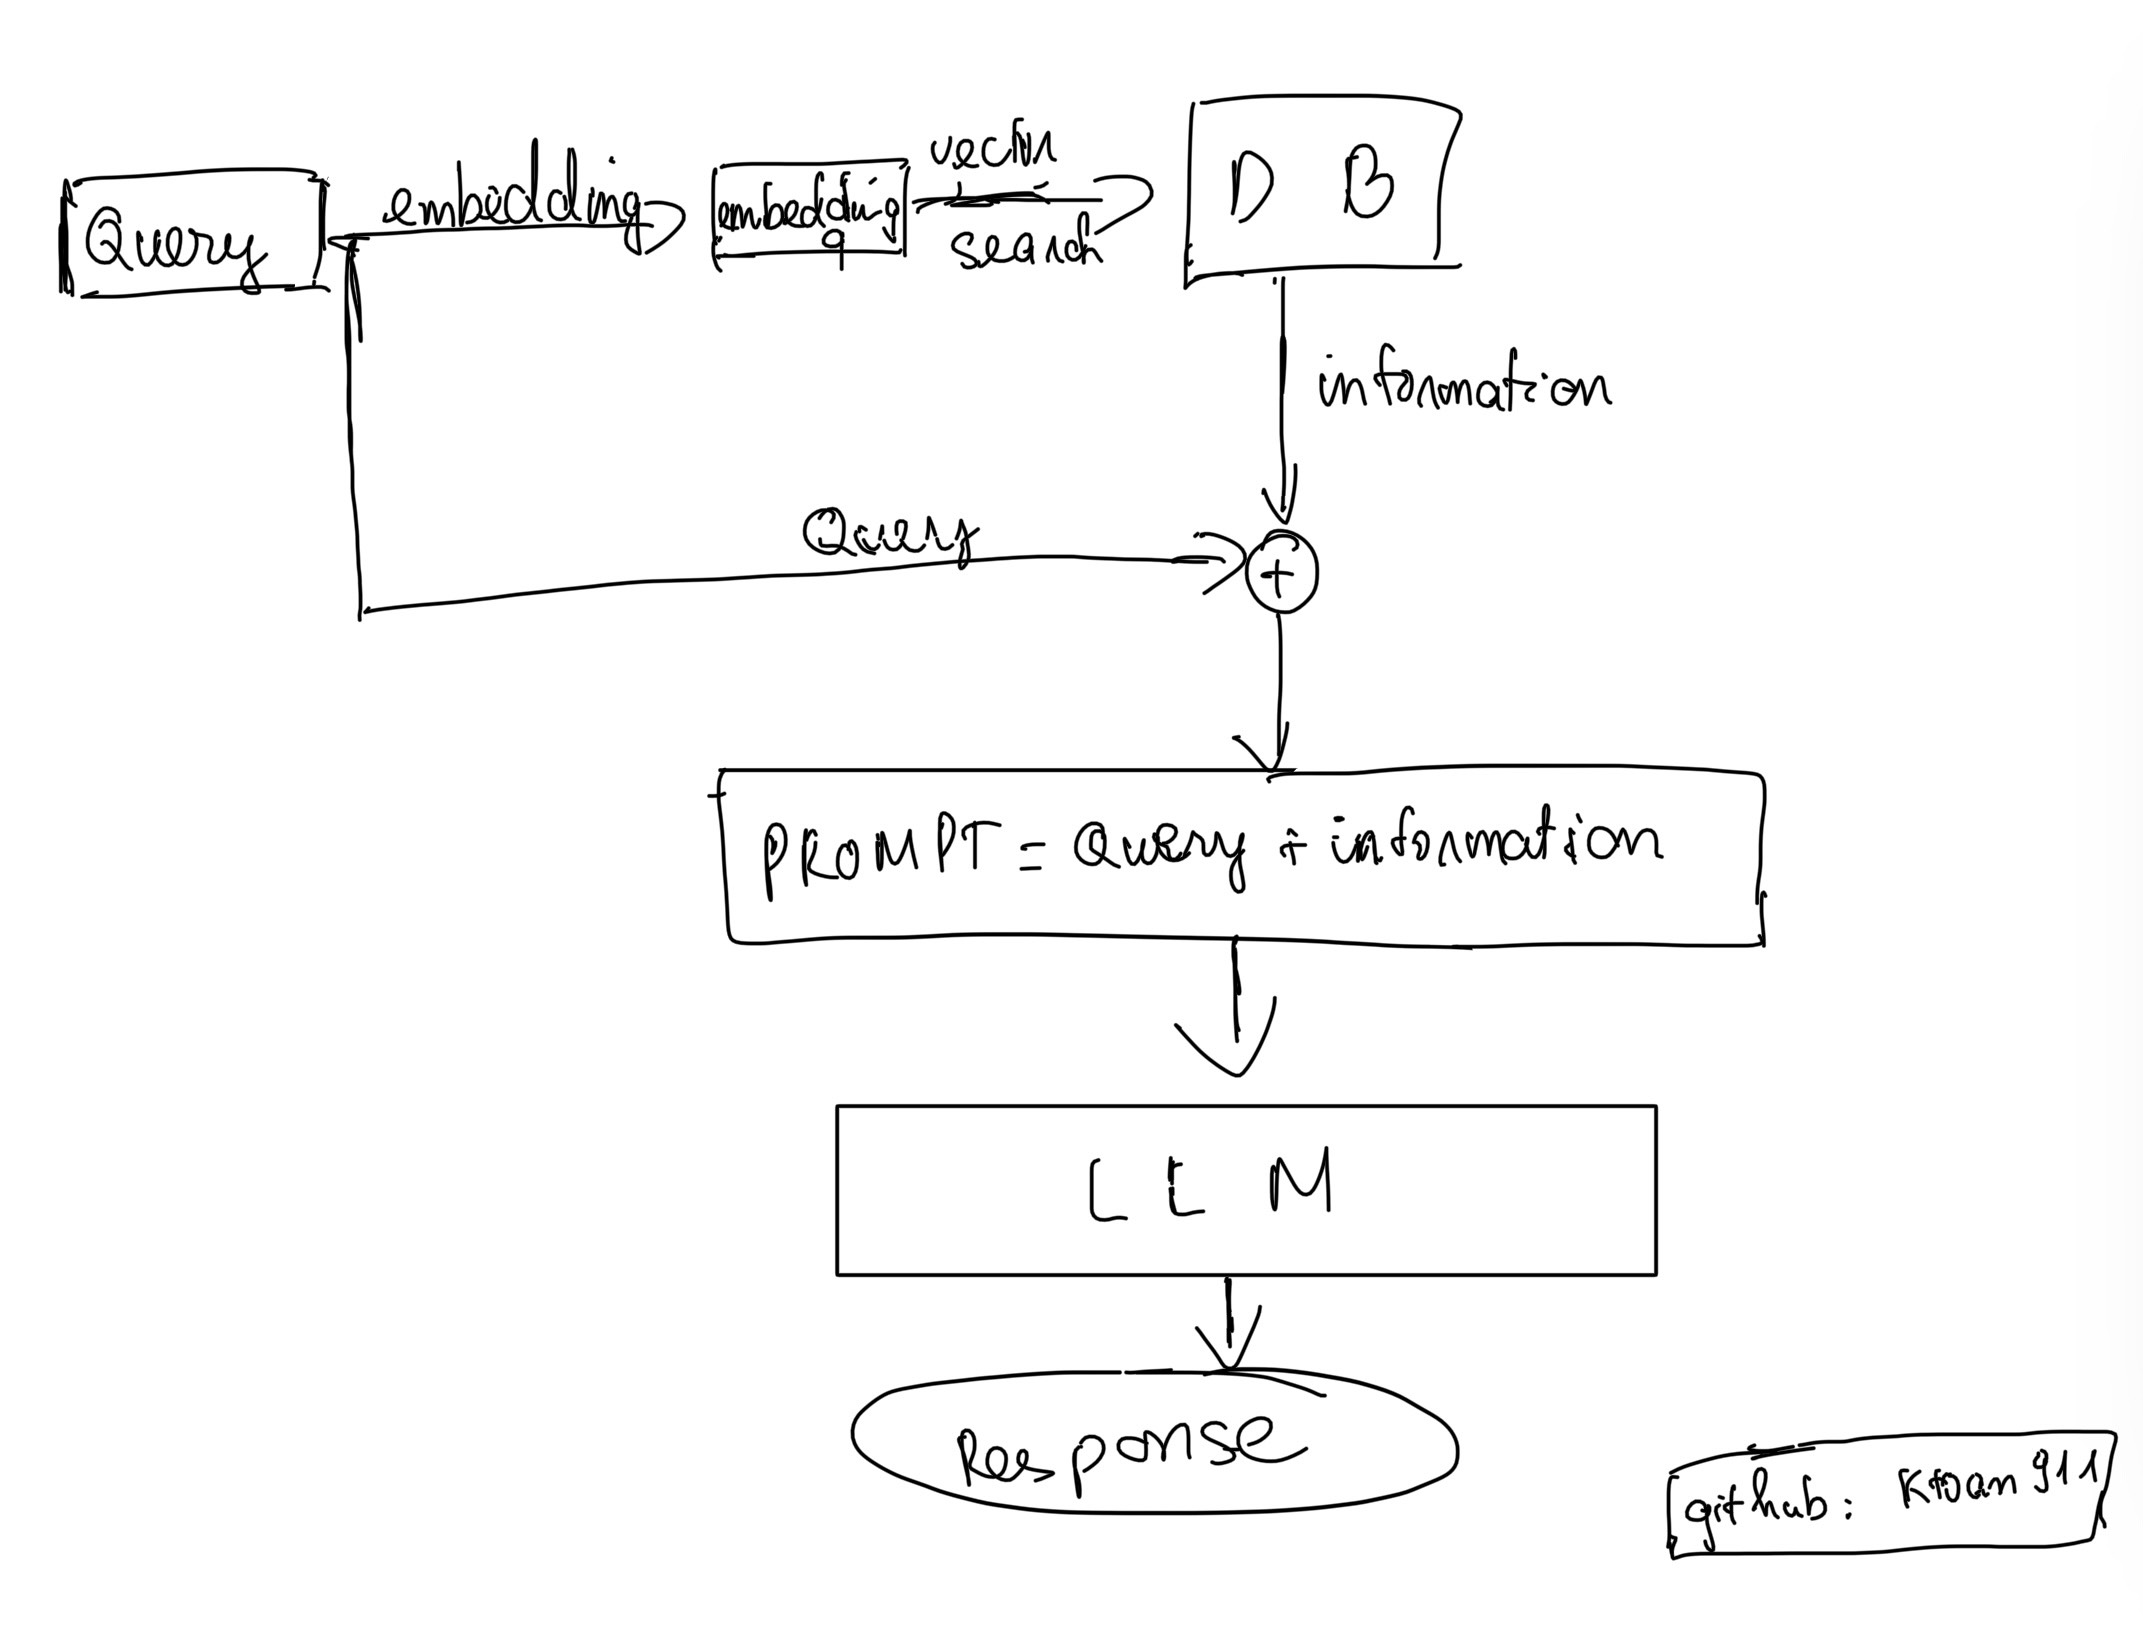 Query
embedding
embedding
q
vector
search
D B
information
Query
+
PROMPT = Query + information
LLM
Response
github: